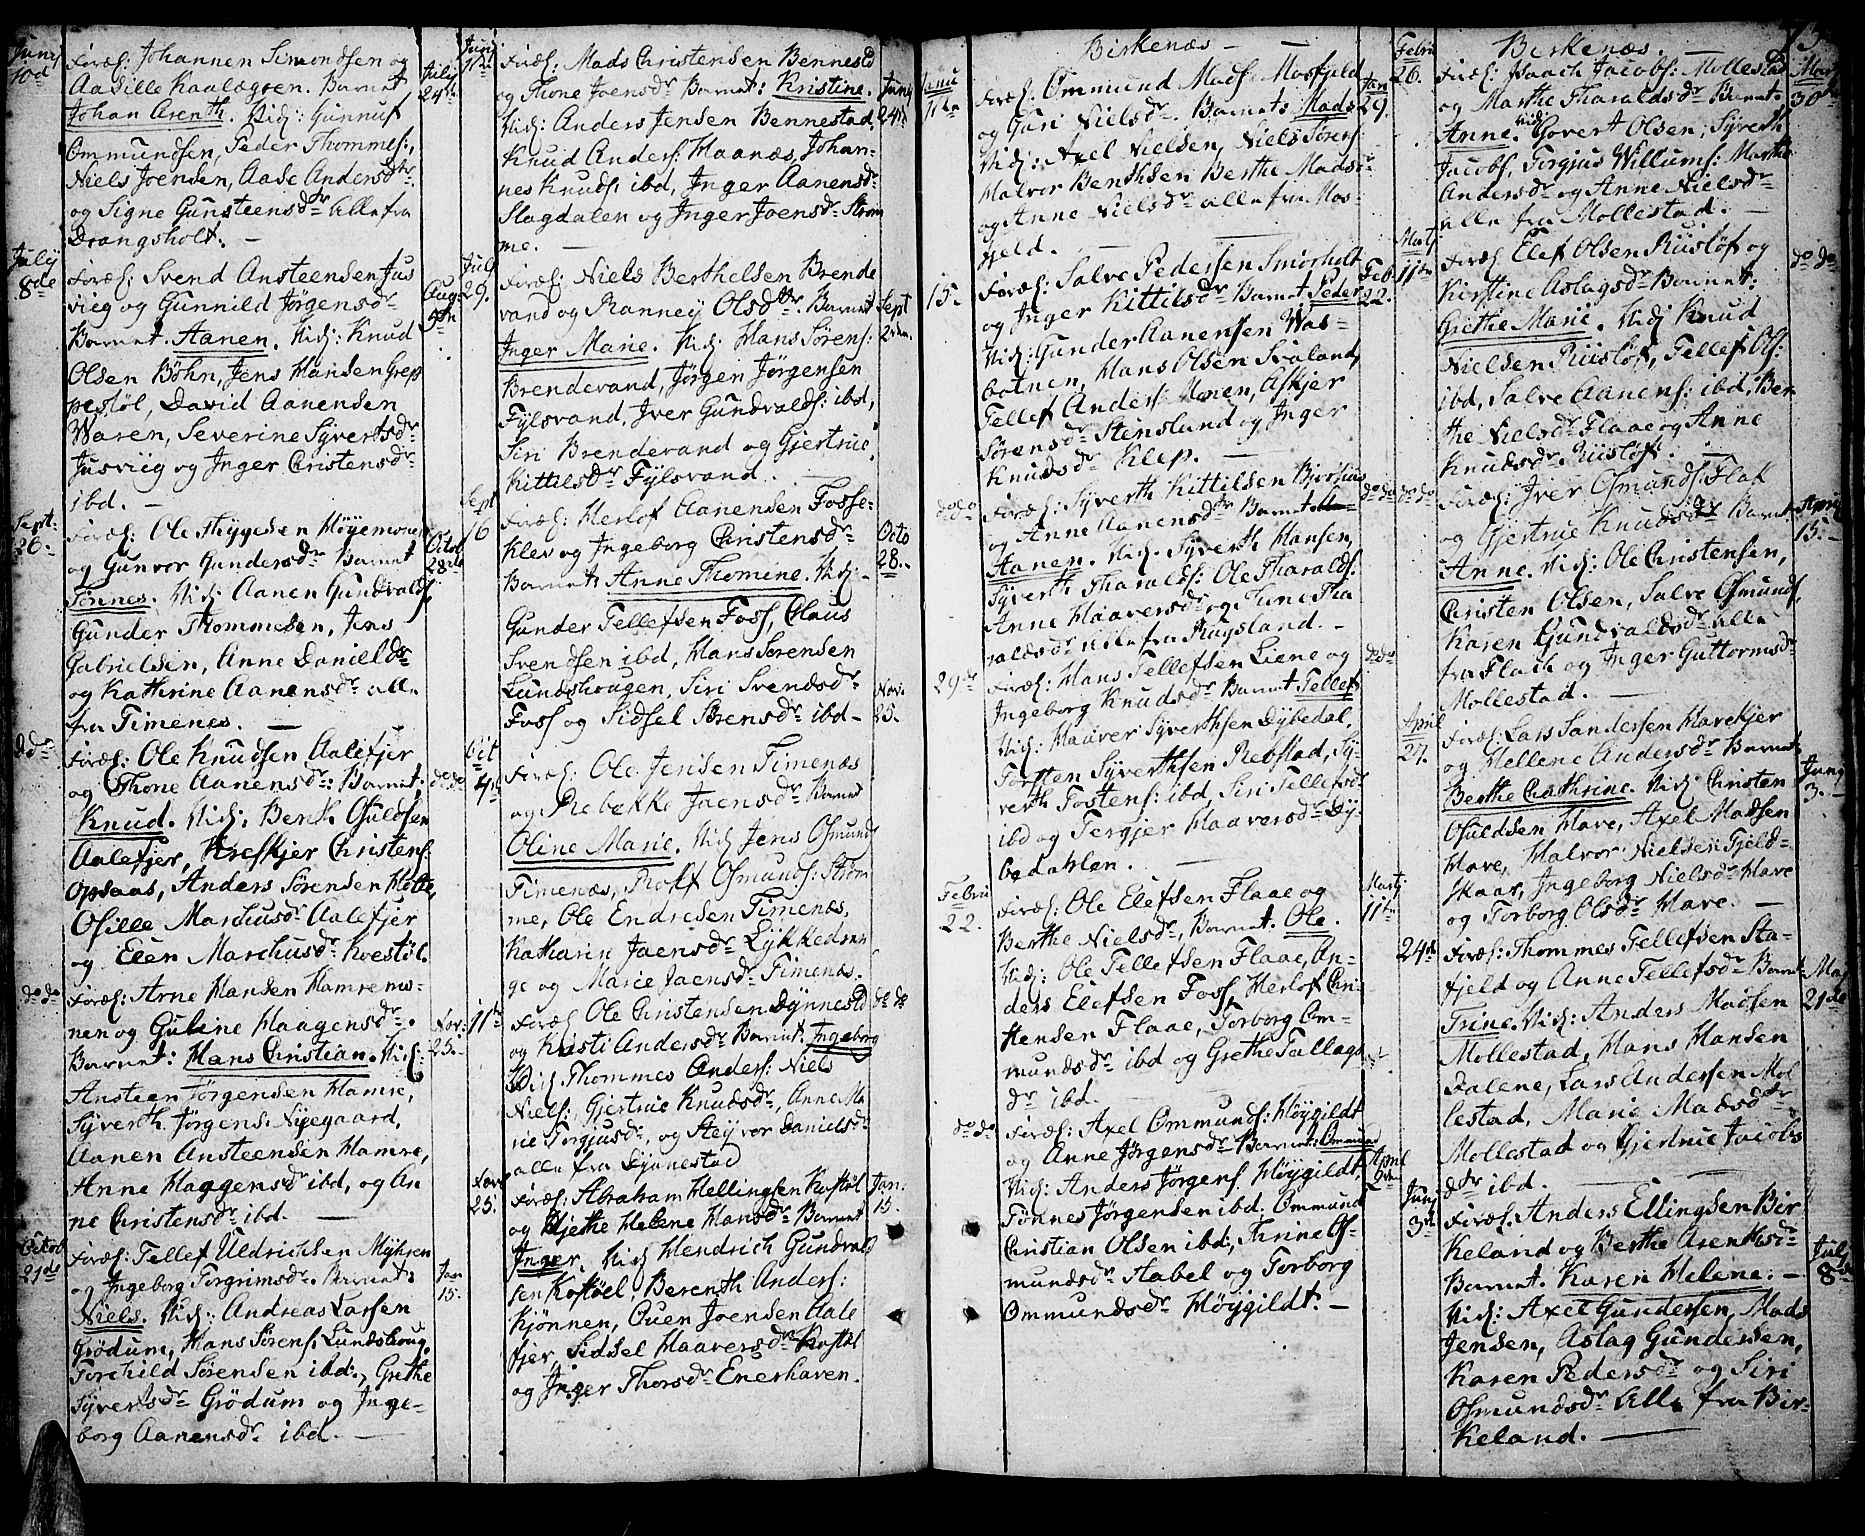 Junj
10d
Foræl: Johannen Simondsen og
Aasille Kaalægren. Barnet
Johan Arenth. Vid: Gunnuf
Ommundsen, Peder Thommes:,
Niels Joensen, Aase Andersdtr
og Signe Gunsteensdr alle fra
Drangsholt. —
July
24de
July
8de
Foræl: Svend Ansteensen Jus
vieg og Gunnild Jørgensdr
Barnet Aanen. Vid: Knud
Olsen Böhn, Jens Hansen Grep
pestøl, David Aanensen
Waren, Severine Syvertsdr
Jusvieg og Inger Christensdr
ibd. —
Aug
5te
Sept:
26.
Foræl: Ole Thygesen Høyemoen
og Gunvor Gundersdr Barnet
Tönnes. Vid: Aanen Gundvalds,
Gunder Thommesen, Jens
Gabrielsen, Anne Danielsdr
og Kathrine Aanensdr alle
fra Timenes. —
Octob
28de
do
Foræl: Ole Knudsen Aalefjer
og Thone Aanensdr: Barnet
Knud. Vid: Bent Osuldsen
Aalefjer, Kreskjer Christens:
Opsaas, Anders Sørensen Holte,
Osille Marchusdr Aalefjer
og Elen Marchusdr Kvestøl.
do do
do do
Foræl: Arne Hansen Hamremo-
nen og Guline Haagensdr.
Barnet: Hans Christian. Vid:
Ansteen Jørgensen Hamre,
Syverth Jørgens: Nyegaard,
Aanen Ansteensen Hamre,
Anne Haggensdr ibd, og An
ne Christensdr ibd. —
Nov:
25.
Octob
21de
Foræl: Tellef Uldrichsen Myhren
og Ingeborg Torgrimsdr. Barnet:
Niels. Vid: Andreas Larsen
Grödum, Hans Sörens: Lundshoug,
Torchild Sörensen ibd:, Grethe
Syversdr Grödum og Inge-
borg Aanensdr ibd. —
Jan
15.
Junj
11te
Foræl: Mads Christensen Bennestd
og Thone Joensdr Barnet: Kristine.
Vid: Anders Jensen Bennestad,
Knud Anders: Haanæs, Johan-
nes Knuds: ibd, Inger Aanensdr
Slagdalen og Inger Joensdr Strøm
me. —
Junj
24de
July
29.
Foræl: Niels Berthelsen Brende
vand og Ranney Olsdtr. Barnet
Inger Marie. Vid: Hans Sörens:
Brendevand, Jörgen Jörgensen
Fylsvand, Iver Gundvalds: ibd,
Siri Brendevand og Gjertrue
Kittilsdr Fylsvand.
Sept
2den
Sept
16
Foræl: Herlof Aanensen Fosse-
Klev og Ingeborg Christensdr
Barnet: Anne Thomine. Vid:
Gunder Tellefsen Foss, Claus
Svendsen ibd, Hans Sørensen
Lundshougen, Siri Svendsdr
Foss og Sidsel Sörensdr ibd —
Octo
28.
Nov.
25.
Oct
4de
Foræl: Ole Jensen Timenæs
og Rebekke Jaensdr Barnet
Oline Marie. Vid: Jens Osmunds
Timenæs, Rolf Osmunds: Strøm
me, Ole Endresen Timenæs,
Katharin Jaensdr Lykkedran
ge og Marie Jaensdr Timenæs.
11te
Foræl: Ole Christensen Dynnestd
og Kristi Andersdr Barnet: Ingeborg
Vid: Thommes Anders: Niels
Niels:, Gjertrue Knudsdr, Anne Ma
rie Torgiusdr, og Steyvor Danielsdr
alle fra Dynnestad
do do
Nov
25.
Foræl: Abraham Hellingsen Kostøl
og Grethe Helene Hansdr Barnet
Inger. Vid: Hendrich Gundvald
sen Kostöel, Berenth Anders:
Kjönnen, Ouen Joensen Aale
fjer, Sidsel Haaversdr Kostøl
og Inger Thorsdr Enerhaven.
Jan:
15.
Birkenæs —
Janu
11te
Foræl: Ommund Mads: Mosfjeld
og Guri Nielsdr. Barnet: Mads
Vid: Axel Nielsen, Niels Sørens:
Halvor Benthsen Berthe Madsdr
og Anne Nielsdr alle fra Mos-
fjeld. —
Jan
29.
15.
Foræl: Salve Pedersen Smörholt
og Inger Kittilsdr Barnet Peder
Vid: Gunder Aanensen Was-
botnen, Hans Olsen Svaland,
Tellef Anders: Monen, Askjer
Sörensdr Stensland og Inger
Knudsdr Klep. —
Feb
22.
do do
Foræl: Syverth Kittilsen Bjorhus
og Anne Aanensdr Barnet
Aanen. Vid. Syverth Hansen,
Syverth Tharalds: Ole Tharalds:
Anne Haaversdr og Tune Tha
raldsdr alle fra Rugsland. —
do do
29de
Foræl: Hans Tellefsen Liene og
Ingeborg Knudsdr Barnet Tellef
Vid: Haaver Syverthsen Dybedal,
Torsten Syverthsen Rebstad, Sy-
verth Tostens: ibd, Siri Tellefsdr
ibd og Tergjer Haaversdr Dy-
bedahlen. —
do do
Febru
22.
Foræl: Ole Elefsen Flaae og
Berthe Nielsdr, Barnet. Ole.
Vid: Ole Tellefsen Flaae, An-
ders Elefsen Foss, Herlof Chri-
stensen Flaae, Torborg Om-
mundsdr ibd og Grethe Tallags
dr ibd.
Martj
11te
do do
Foræl: Axel Ommunds: Høygildt
og Anne Jørgensdr Barnet: Ommund
Vid: Anders Jørgens: Høygildt,
Tönnes Jørgensen ibd: Ommund
Christian Olsen ibd:, Trine Os-
mundsdr Stabel og Torborg
Ommundsdr Høygildt. —
April
2den
Birkenæs.
Febru
26.
Foræl: Isaach Jacobs: Mollestad
og Marthe Tharaldsdr Barnet.
Anne. Vid: Govert Olsen, Syverth
Jacobs, Torgius Willums: Marthe
Andersdr og Anne Nielsdr
alle fra Mollestad. —
Mart
30te
Martj
11te
Foræl: Elef Olsen Riisløf og
Kirstine Aslagsdr Barnet:
Grethe Marie. Vid: Knud
Nielsen Riisløf, Tellef Ols:
ibd, Salve Aanens: ibd, Ber
the Nielsdr Flaae og Anne
Knudsdr Riisløf. —
do do
do do
Foræl: Iver Osmunds: Flak
og Gjertrue Knudsdr Barnet
Anne. Vid: Ole Christensen,
Christen Olsen, Salve Osmunds,
Karen Gundvaldsdr alle
fra Flach og Inger Guttormsdr
Mollestad. —
April
15. —
April
27.
Foræl: Lars Sandersen Harekjer
og Hellene Andersdr Barnet
Berthe Cathrine. Vid: Christen
Osuldsen Have, Axel Madsen
Have, Halvor Nielsen Fjeld-
skaar, Ingeborg Nielsdr Have
og Torborg Olsdr Have. —
Junj
3. —
24de
Foræl: Thommes Tellefsen Sta-
fjeld og Anne Tellefsdr Barnet
Trine. Vid: Anders Madsen
Mollestad, Hans Hansen
Dalene, Lars Andersen Mol
lestad, Marie Madsdtr
Mollestad og Gjertrue Jacobs
dtr ibd. —
Maj
21de
Junj
3de
Foræl. Anders Ellingsen Bir
Keland og Berthe Arenthsdr
Barnet. Karen Helene. —
Vid: Axel Gundersen, Mads
Jensen, Aslag Gundersen,
Karen Pedersdr og Siri
Osmundsdr alle fra Bir-
Keland. —
July
8de